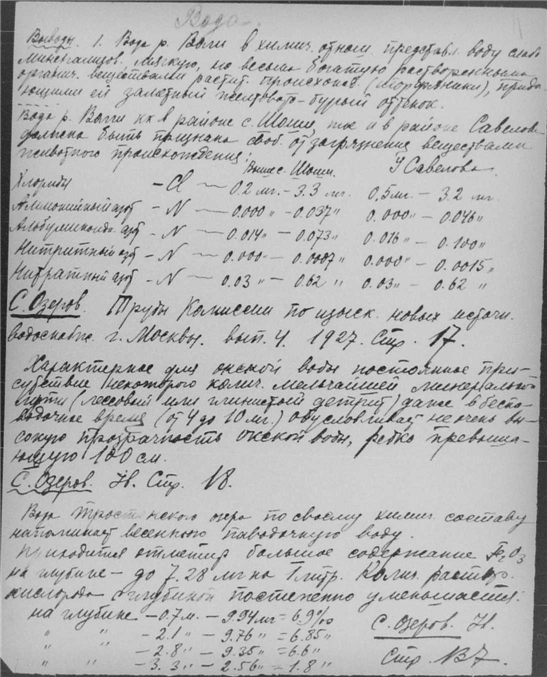 Вода.
Выводы. 1. Вода р. Волги в химич. отнош. представл. воду слабо
минерализов., мягкую, но весьма богатую растворенными
органич. веществами растит. происхожд. (), прида-
ющими ей заметный желтовато-бурый оттенок.
Вода р. Волги как в районе с. Шоши, так и в районе Савелова
должна быть признана своб. от загрязнения веществами
животного происхождения:
Выше с. Шоши. У Савелова.
Хлориды – Cl – 0.2 мг. – 3.3 мг. 0,5 мг. – 3.2 мг.
Аммиачный азот – N – 0.000 " – 0.037 " 0.000 " – 0.046 "
Альбуминоидн. азот – N – 0.014 " – 0.073 " 0.016 " – 0.100 "
Нитритный азот – N – 0.000 – 0.0007 " 0.000 " – 0.0015 "
Нитратный азот – N – 0.03 " – 0.62 " 0.03 " – 0.62 "
С. Озеров. Труды Комиссии по изыск. новых источн.
водоснабж. г. Москвы. вып. 4. 1927. Стр. 17.
Характерное для окской воды постоянное при-
сутствие некоторого колич. мельчайшей минеральной
мути (лессовый или глинистый детрит) даже в беспа-
водочное время (от 4 до 10 мг.) обусловливает не очень вы-
сокую прозрачность окской воды, редко превыша-
ющую 100 см.
С. Озеров. Стр. 18.
Вода Тростенского озера по своему химич. составу
напоминает весеннюю паводочную воду.
Приходится отметить большое содержание Fe2O3
на глубине – до 7.28 мг на 1 литр. Колич. раствор.
кислорода с глубиной постепенно уменьшается:
на глубине – 0.7 м. – 9.94 мг = 6.9%
" " – 2.1 " – 9.76 " = 6.85 "
" " – 2.8 " – 9.35 " = 6.6 "
" " – 3.3 " – 2.56 " = 1.8 "
С. Озеров.
Стр.